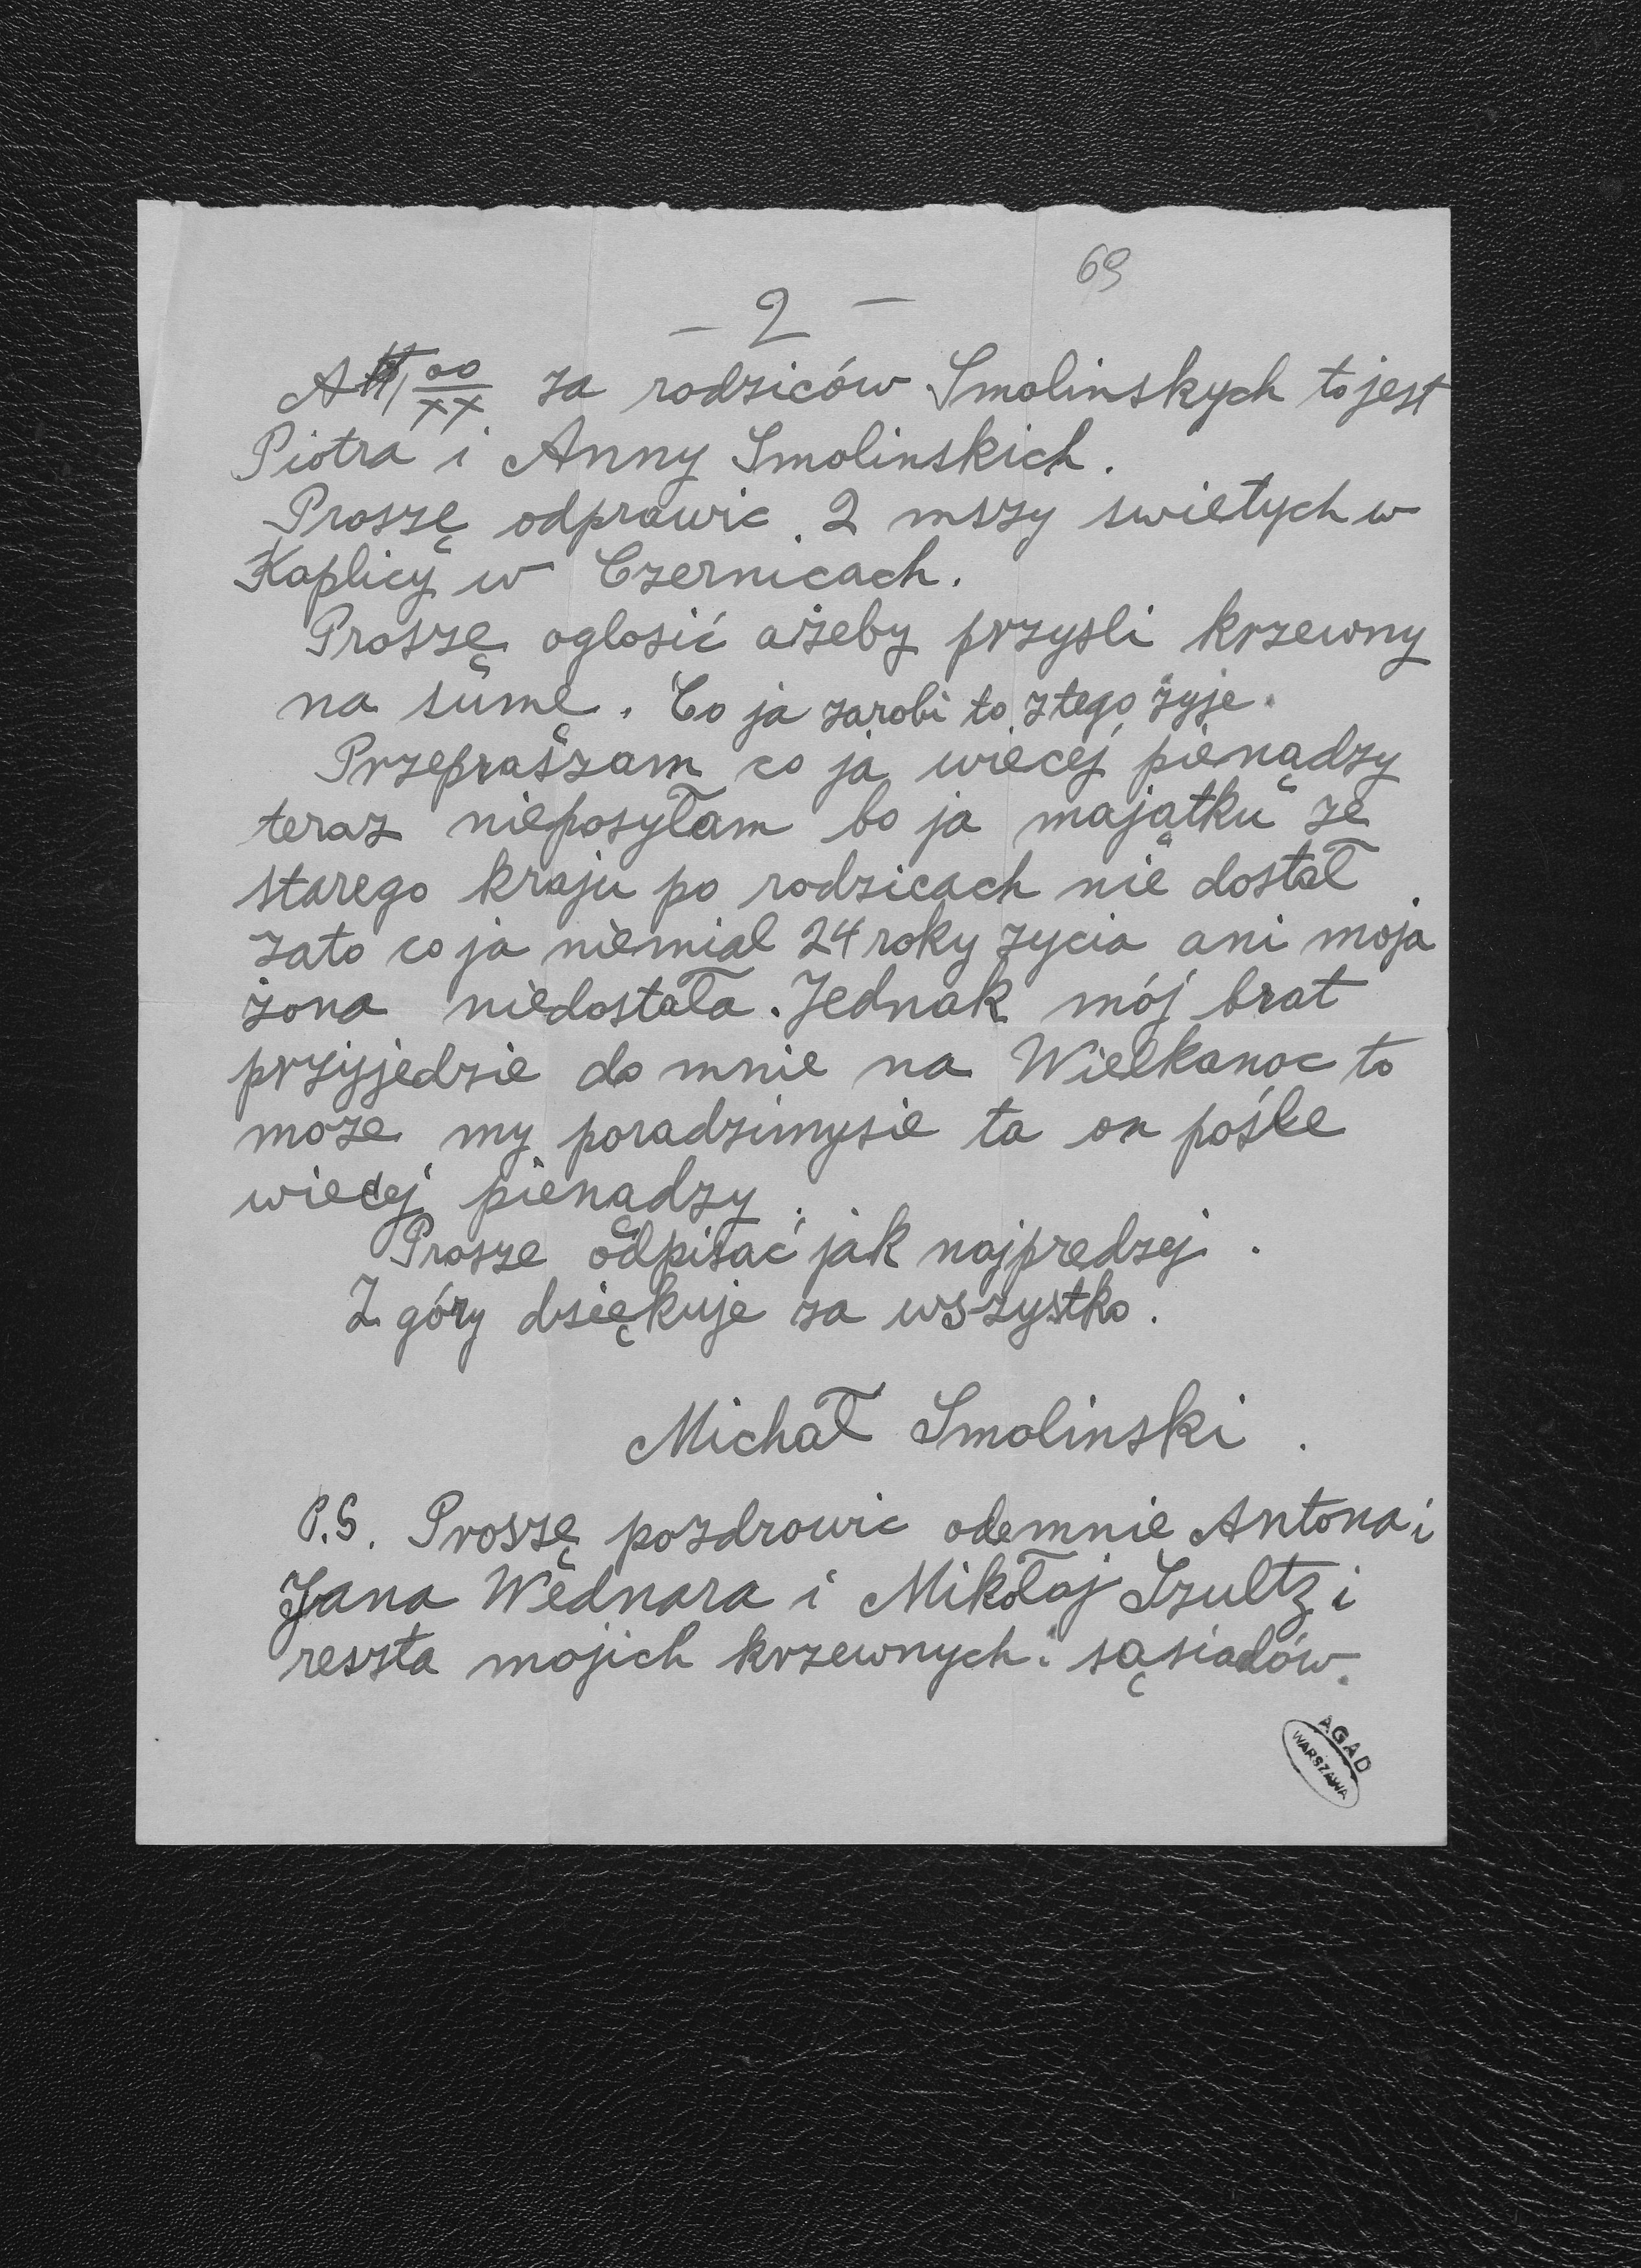 69
- 2 -
A 1 00/xx za rodziców Smolinskych to jest
Piotra i Anny Smolinskich.
Proszę odprawic 2 mszy swietych w
Kaplicy w Czernicach.
Proszę oglosić ażeby przysli krzewny
na sumę. Co ja zarobi to z tego żyje.
Przepraszam co ja wiecej pienądzy
teraz nieposyłam bo ja majątku ze
starego kraju po rodzicach nie dostał
zato co ja niemial 24 roky zycia ani moja
żona niedostała. Jednak mój brat
przyjjedzie do mnie na Wielkanoc to
moze my poradzimysie ta on pośle
wiecej pienądzy.
Prosze odpisać jak najpredzej.
Z góry dsiękuje za wszystko.
Michał Smolinski.
P.S. Proszę pozdrowic odemnie Antona i
Jana Wednara i Mikołaj Szultz i
reszta mojich krzewnych i sąsiadów.
AGAD
WARSZAWA